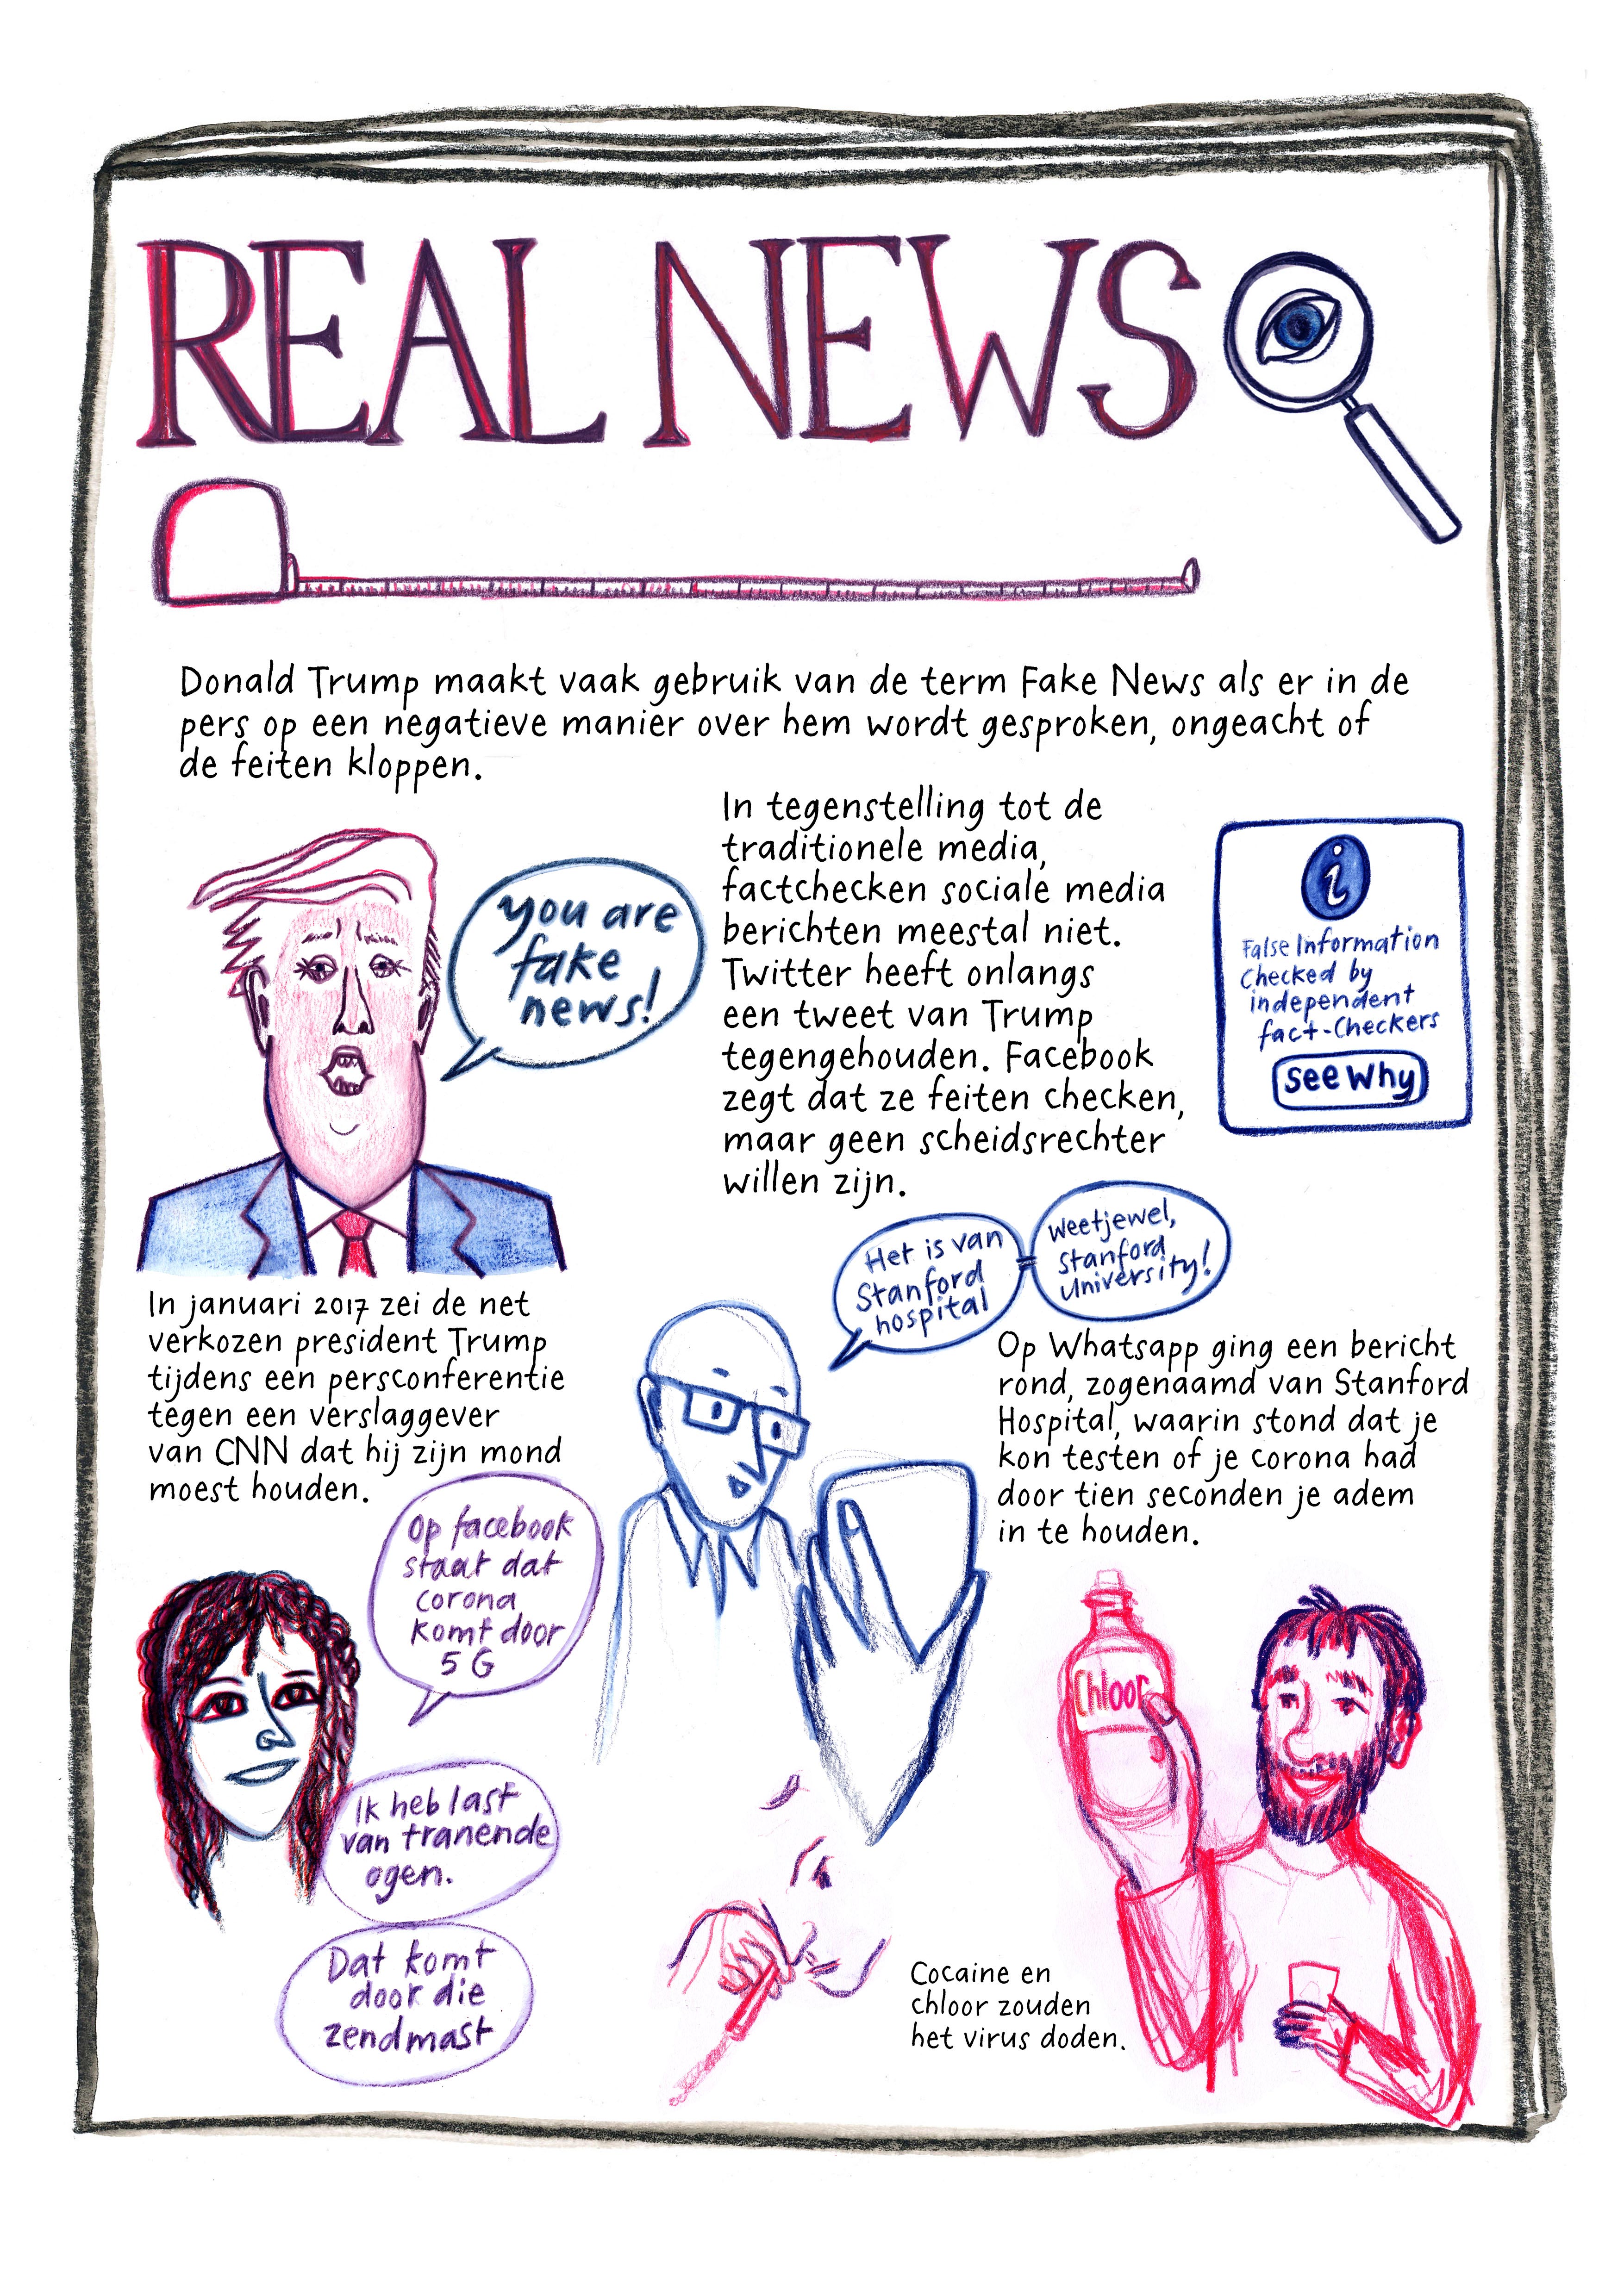 REAL NEWS
Donald Trump maakt vaak gebruik van de term Fake News als er in de
pers op een negatieve manier over hem wordt gesproken, ongeacht of
de feiten kloppen.
you are
fake
news!
In tegenstelling tot de
traditionele media,
factchecken sociale media
berichten meestal niet.
Twitter heeft onlangs
een tweet van Trump
tegengehouden. Facebook
zegt dat ze feiten checken,
maar geen scheidsrechter
willen zijn.
i
False Information
Checked by
independent
fact-Checkers
see why
In januari 2017 zei de net
verkozen president Trump
tijdens een persconferentie
tegen een verslaggever
van CNN dat hij zijn mond
moest houden.
Het is van
Stanford
hospital
weetjewel,
Stanford
University!
Op Whatsapp ging een bericht
rond, zogenaamd van Stanford
Hospital, waarin stond dat je
kon testen of je corona had
door tien seconden je adem
in te houden.
Op facebook
staat dat
corona
komt door
5 G
Ik heb last
van tranende
ogen.
Dat komt
door die
zendmast
Chloor
Cocaine en
chloor zouden
het virus doden.